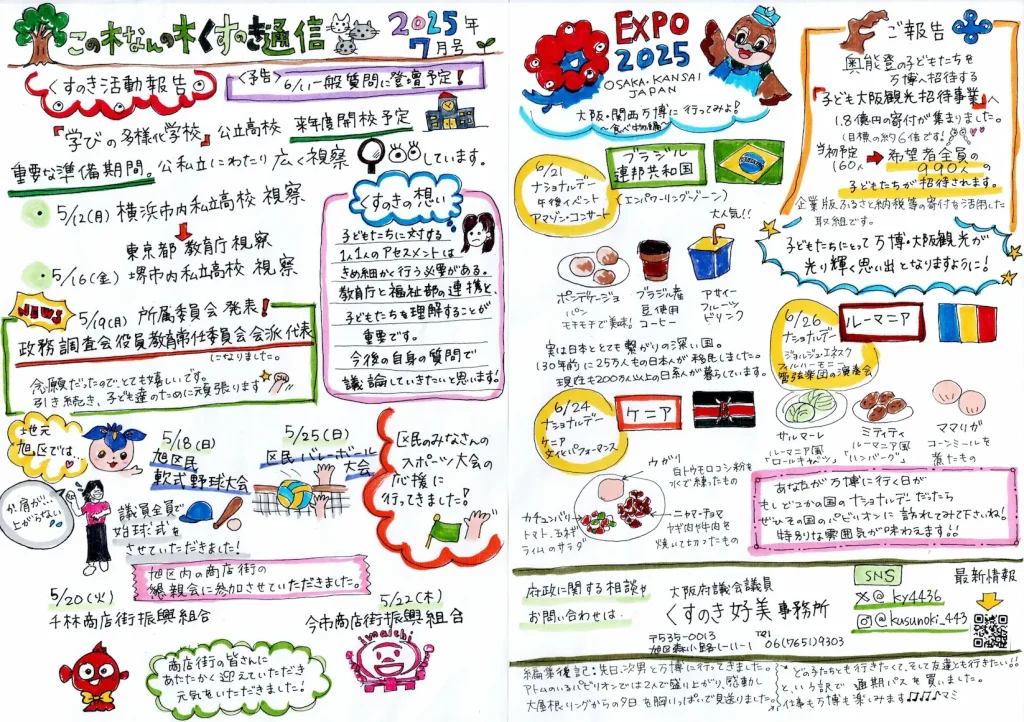 この木なんの木くすのき通信
2025年
7月号
くすのき活動報告
<予告>
6/11 一般質問に登壇予定!
『学びの多様化学校』公立高校 来年度開校予定
重要な準備期間。公私立にわたり広く視察しています。
5/12(月) 横浜市内私立高校 視察
東京都 教育庁視察
5/16(金) 堺市内私立高校 視察
くすのきの想い
子どもたちに対する
1人1人のアセスメントは
きめ細かく行う必要がある。
教育庁と福祉部の連携と、
子どもたちを理解することが
重要です。
今後の自身の質問で
議論していきたいと思います!
NEWS
5/19(月) 所属委員会 発表!
政務調査会役員教育常任委員会会派代表
になりました。
念願だったのでとても嬉しいです。
引き続き、子ども達のために頑張ります
地元
旭区では…
5/18(日)
旭区民
軟式野球大会
5/25(日)
区民バレーボール
大会
区民のみなさんの
スポーツ大会の
応援に
行ってきました!
肩が…
上がらない
議員全員で
始球式を
させていただきました!
旭区内の商店街の
懇親会に参加させていただきました。
5/20(火)
千林商店街振興組合
5/22(木)
今市商店街振興組合
imaichi
商店街の皆さんに
あたたかく迎えていただき
元気をいただきました!
EXPO
2025
OSAKA・KANSAI
JAPAN
大阪・関西万博に行ってみよ!
〜食べ物編〜
6/21
ナショナルデー
午後イベント
アマゾン・コンサート
ブラジル
連邦共和国
(エンパワーリングゾーン)
大人気!!
ポンデケージョ
パン
モチモチで美味!
ブラジル産
豆使用
コーヒー
アサイー
フルーツ
ドリンク
実は日本ととても繋がりの深い国。
130年前に25万人もの日本人が移民しました。
現在も200万人以上の日系人が暮らしています。
6/24
ナショナルデー
ケニア
ダイヒパフォーマンス
ケニア
ウガリ
白トウモロコシ粉を
水で練ったもの
カチュンバリ
トマト、玉ネギ
ライムのサラダ
ニャマ・チョマ
ヤギ肉や牛肉を
焼いて切ったもの
ご報告
奥能登の子どもたちを
万博へ招待する
『子ども大阪観光招待事業』へ
1.8億円の寄付が集まりました。
(目標の約6倍です!)
当初予定
160人
希望者全員の
990人の
子どもたちが招待されます。
企業版ふるさと納税等の寄付を活用した
取組です。
子どもたちにとって万博・大阪観光が
光り輝く思い出となりますように!
6/26
ナショナルデー
ジョルジュ・エネスク
フィルハーモニー
管弦楽団の演奏会
ルーマニア
サルマーレ
ルーマニア風
「ロールキャベツ」
ミティティ
ルーマニア風
「ハンバーグ」
ママリガ
コーンミールを
蒸したもの
あなたが万博に行く日が
もしどこかの国のナショナルデーだったら
ぜひその国のパビリオンに訪れてみて下さいね!
特別な雰囲気が味わえます!!
府政に関する相談や
お問い合わせは、
大阪府議会議員
くすのき好美 事務所
〒535-0013
旭区森小路1-11-11
TEL 06(7651)9303
SNS
X@ky4436
@kusunoki_443
最新情報
編集後記:先日、次男と万博に行ってきました。
アトムのいるパビリオンでは2人で盛り上がり、感動し
大屋根リングからの夕日を胸いっぱいで見送りました。
どのうちとも行きたくて、そして友達とも行きたい!!
という訳で 通期パスを買いました。
仕事も万博も楽しみます♫♫♫マミ